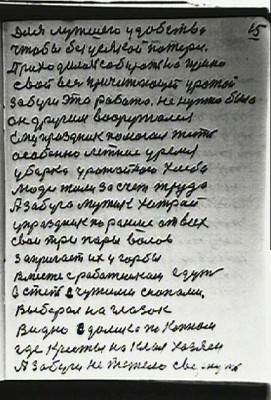 15
для лучшего удобства
чтобы без всякой потери.
Приходилося собирать на гумно
свой весь причитающей урожай
Забуги это работа. не нужно было
он другим вооружался
Ему праздник помогал жить
особенно летнее время
уборка урожайного хлеба
люди жили за счет труда
А Забуга мужик хитрай
упраздник по раньше от всех
свои три пары волов
запрягает их у горбы
Вместе с работником едут
в степь с чужими снопами,
Выберал на глазок
Видно в долике по копнам
где кресты на клал хозяен
А Забуги не тяжело